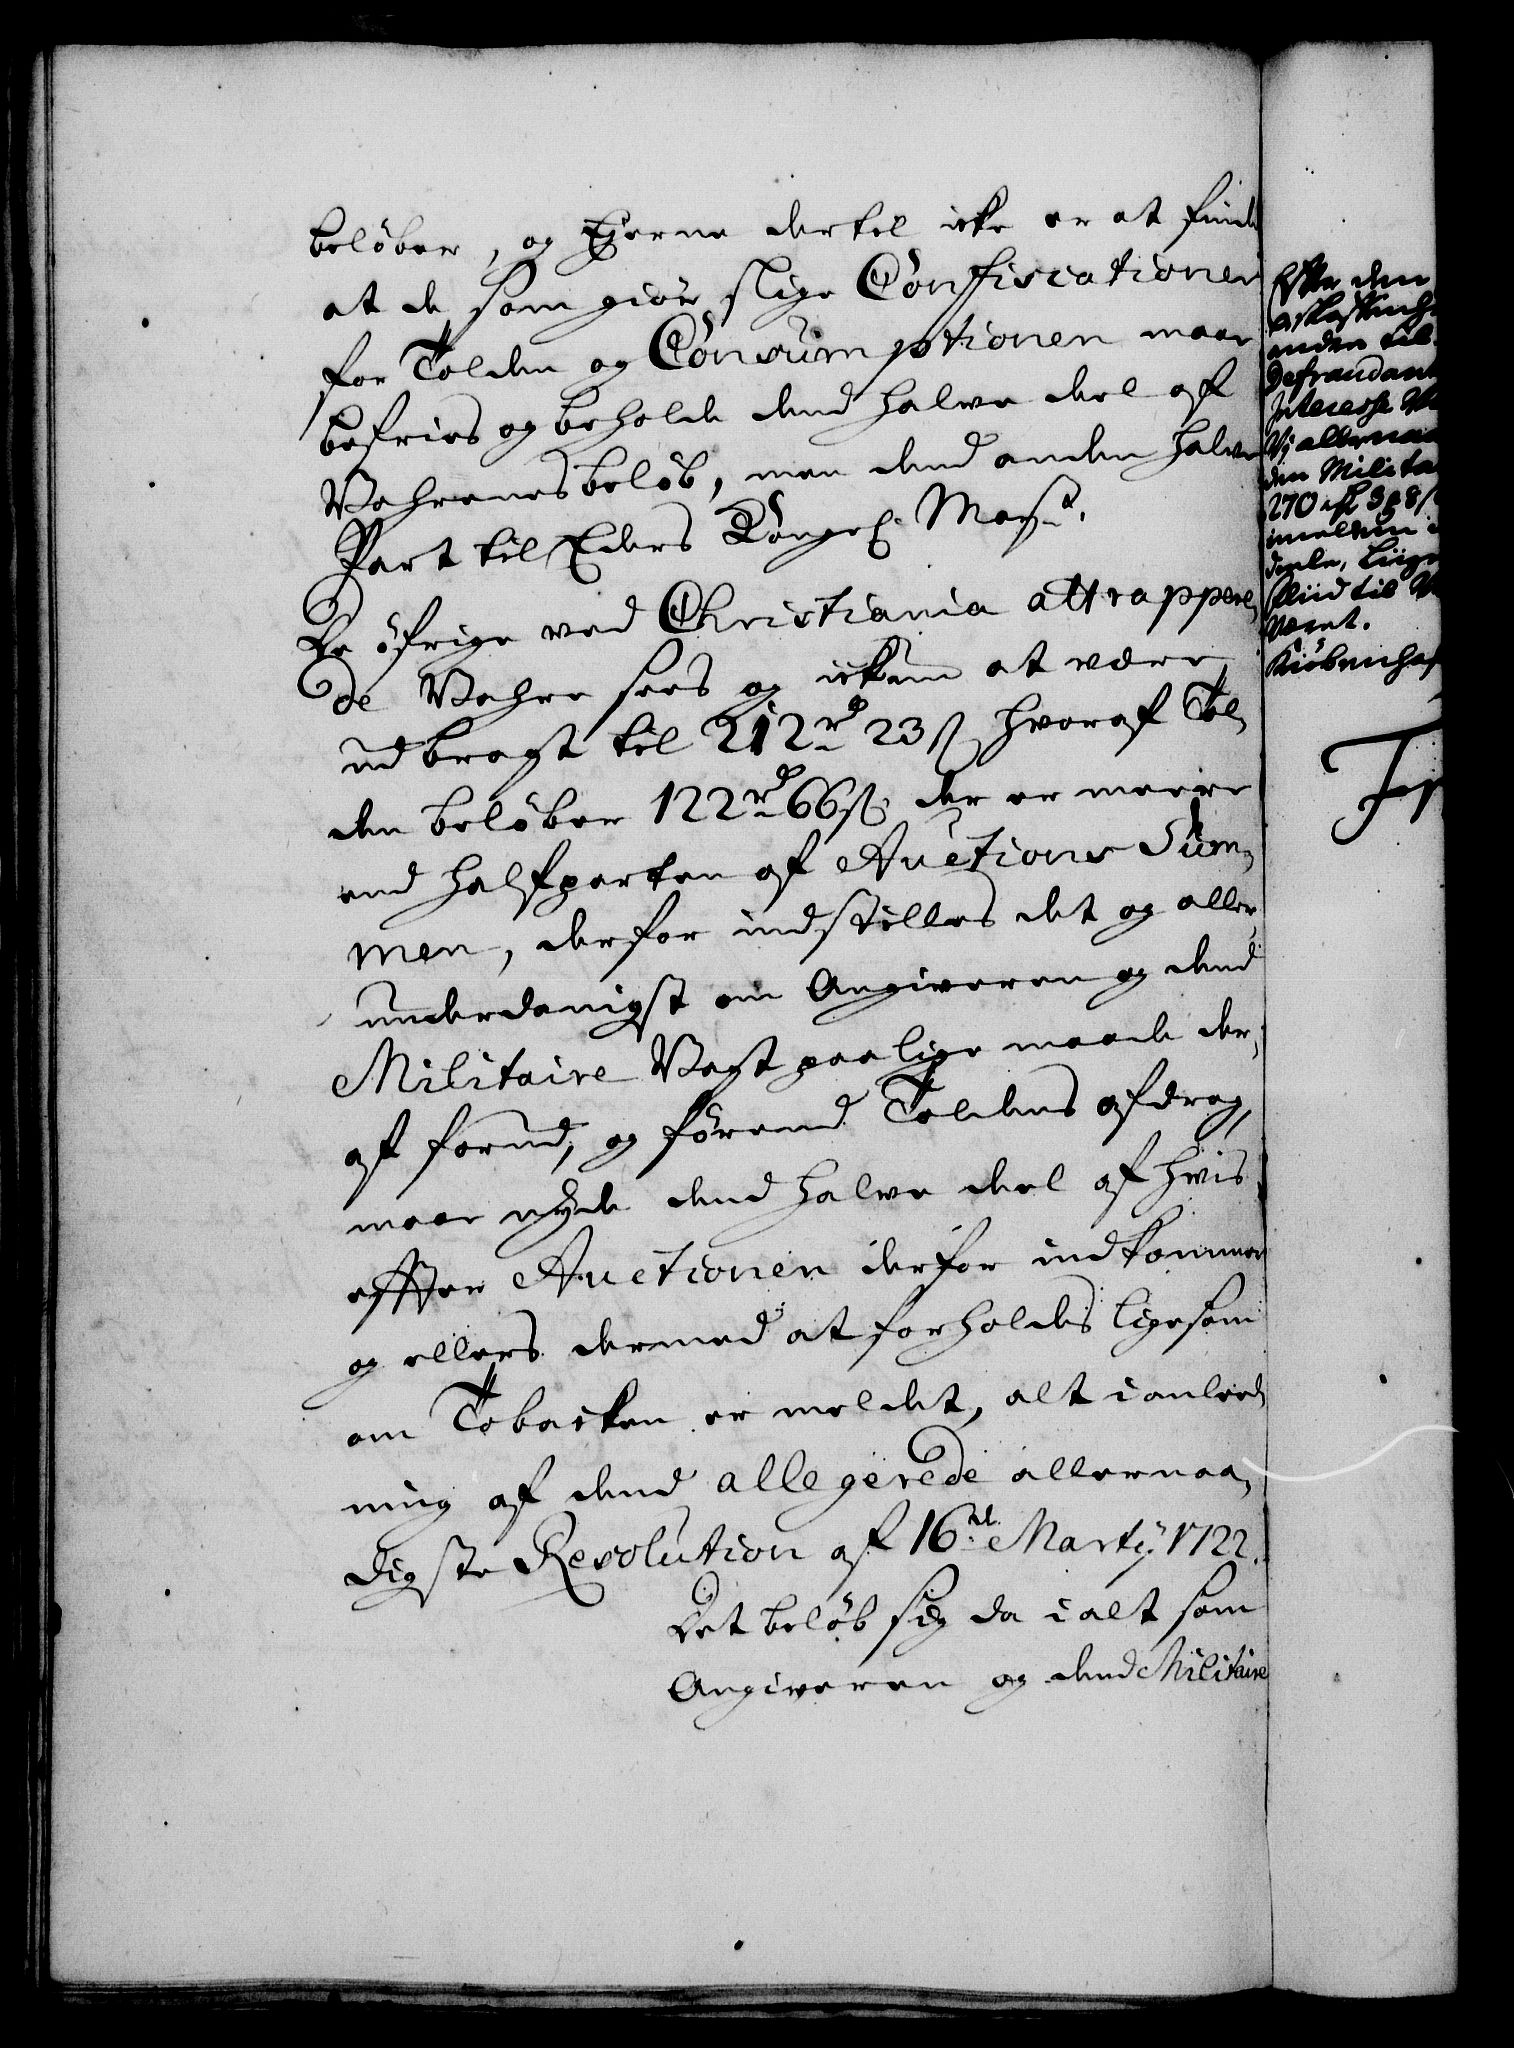 beløber, og Ejerne dertil icke er at finde
at de som giör slige Confiscationer
for Tolden og Consumptionen maae
befries og beholde dend halve deel af
Vahrenes beløb, men dend anden halve
Part til Eders Kongel. Mayst.
De öfrige ved Christiania attrappere,
de Vahre sees og ickun at være
udbragt til 212 rd 23 ß, hvoraf Tol,
den beløber 122 rd 66 ß, der er meere
end halfparten af Auctions Sum,
men, derfor indstilles det og aller,
underdanigst om Angiveren og dend
Militaire Vagt paa lige maade der,
af forud, og förend Toldens afdrag,
maae nyde dend halve deel af hvis
effter Auctionen derfor indkommer
og ellers dermed at forholdes ligesom
om Tobacken er meldet, alt i anleed,
ning af dend allegerede allernaa,
digste Resolution af 16de Marty 1722.
Det beløb sig da i alt som
Angiveren og dend Militaire
Effter den
anden til
Defraudan
Interesse
Vj allernaa
den Milita
270 rd 38 ß
imellem
deele, liig
til
været.
Kiöbenhaf